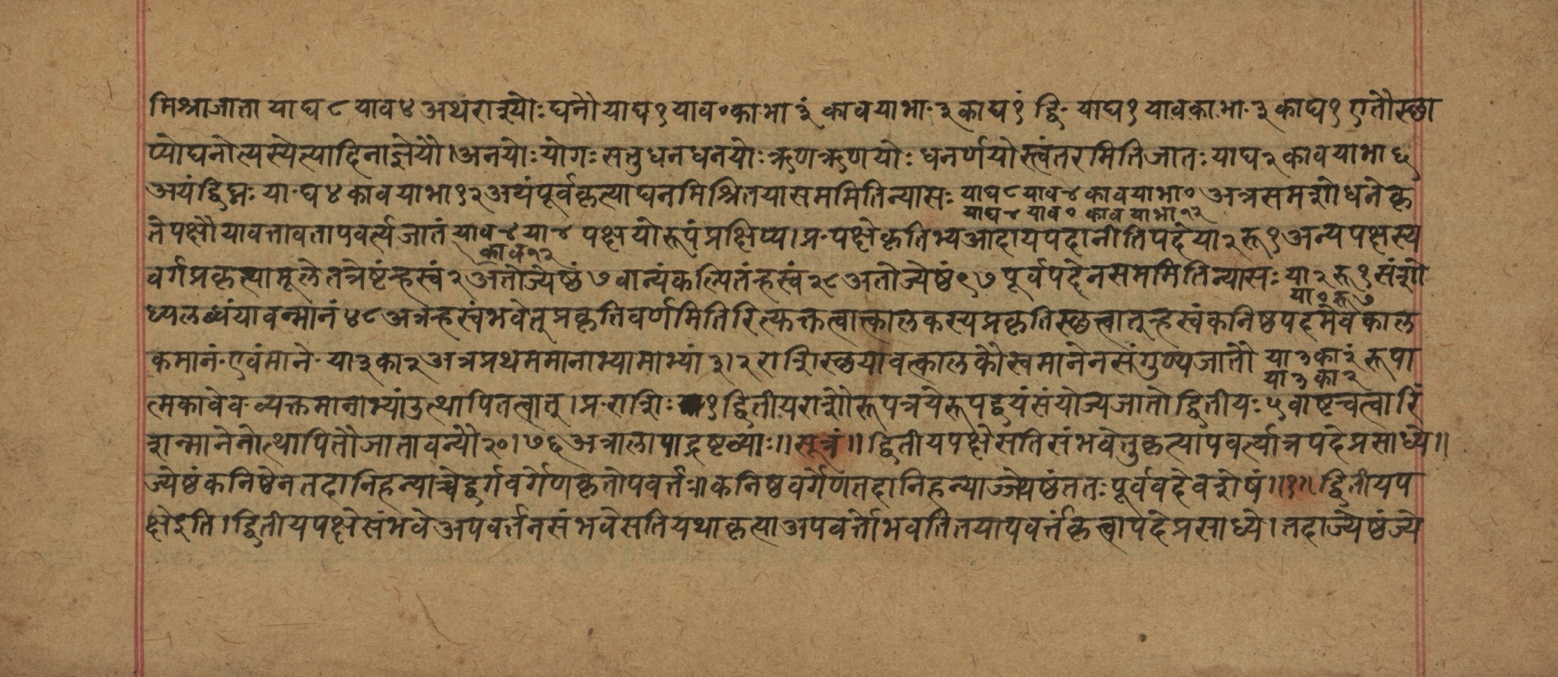 मिश्राजाता याघ ८ याव ४ अथरात्र्योः घनौ याघ १ याव॰काभा ३ं कावयाभा ३ काघ १ं द्वि याघ १ यावकाभा ३ काघ १ एतौस्छा
प्योघनोत्यस्येत्यादिनाज्ञेयौ।अनयोःयोगःसतुधनधनयोःऋणऋणयोः धनर्णयोस्त्वंतरमितिजातःयाघ२कावयाभा६
अयंद्विघ्नः याघ४कावयाभा१२अथंपूर्वकृत्याघनमिश्रितयासममितिन्यासः याघ८याव४कावयाभा० अत्रसमशोधनेकृ
याघ४याव०कावयाभा१२
तेपक्षौयावत्तावतापवर्त्यजातं याव४या४ पक्षयोरूपंप्रक्षिप्य।प्र-पक्षेकृतिभ्यआदायपदानीतिपदंया२रू१अन्यपक्षस्य
काव१२
वर्गप्रकृत्यामूलेतत्रेष्टंन्हस्वं२अतोज्येष्ठं७वान्यंकल्पितंन्हस्वं२८अतोज्येष्ठं९७पूर्वपदेनसममितिन्यासः या२रू१ संशो
या०रू७
ध्यलब्धंयावन्मानं४८अत्रन्हस्वंभवेत्प्रकृतिवर्णमितिरित्यक्तत्वात्कालकस्यप्रकृतिस्छत्वात्न्हस्वंकनिष्ठपदमेवकाल
कमानं-एवंमाने-या३का२अत्रप्रथममानाभ्यामाभ्यां३।२राशिस्छयावत्कालकौस्वमानेनसंगुण्यजातौ या३का२ं रूपा
या३का२
त्मकावेव-व्यक्तमानाभ्यांउत्थापितत्वात्।प्र-राशिः १द्वितीयराशौरूपत्रयेरूपद्वयंसंयोज्यजातोद्वितीयः५वाष्टचत्वारिं
शन्मानेनोत्थापितौजातावन्यौ२०।७६अत्रालापाद्रष्टव्याः॥सूत्रं॥द्वितीयपक्षेसतिसंभवेतुकृत्यापवर्त्यात्रपदेप्रसाध्ये॥
ज्येष्ठंकनिष्ठेनतदानिहन्याच्चेद्वर्गवर्गेणकृतोपवर्त्तः॥कनिष्ठवर्गेणतदानिहन्याज्ज्येष्ठंततःपूर्ववदेवशेषं॥१॥द्वितीयप
क्षेइति।द्वितीयपक्षेसंभवेअपवर्त्तनसंभवेसतियथाकृत्याअपवर्त्तोभवतितयापवर्त्तंकृत्वापदेप्रसाध्ये।तदाज्येष्ठंज्ये